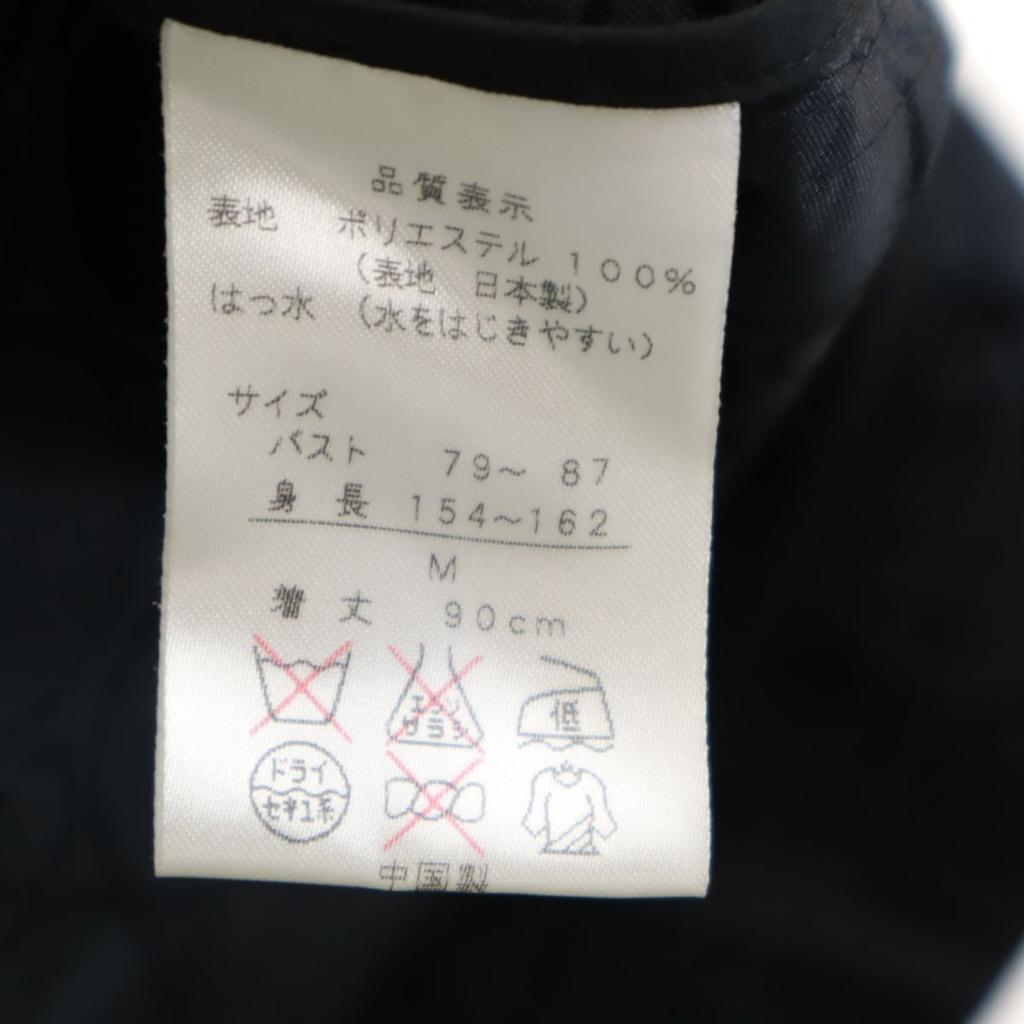 品質表示
表地 ポリエステル 100%
(表地 日本製)
はっ水 (水をはじきやすい)
サイズ
バスト 79～ 87
身長 154～162
M
着丈 90cm
エンソサラシ
低
ドライ
セキユ系
中国製